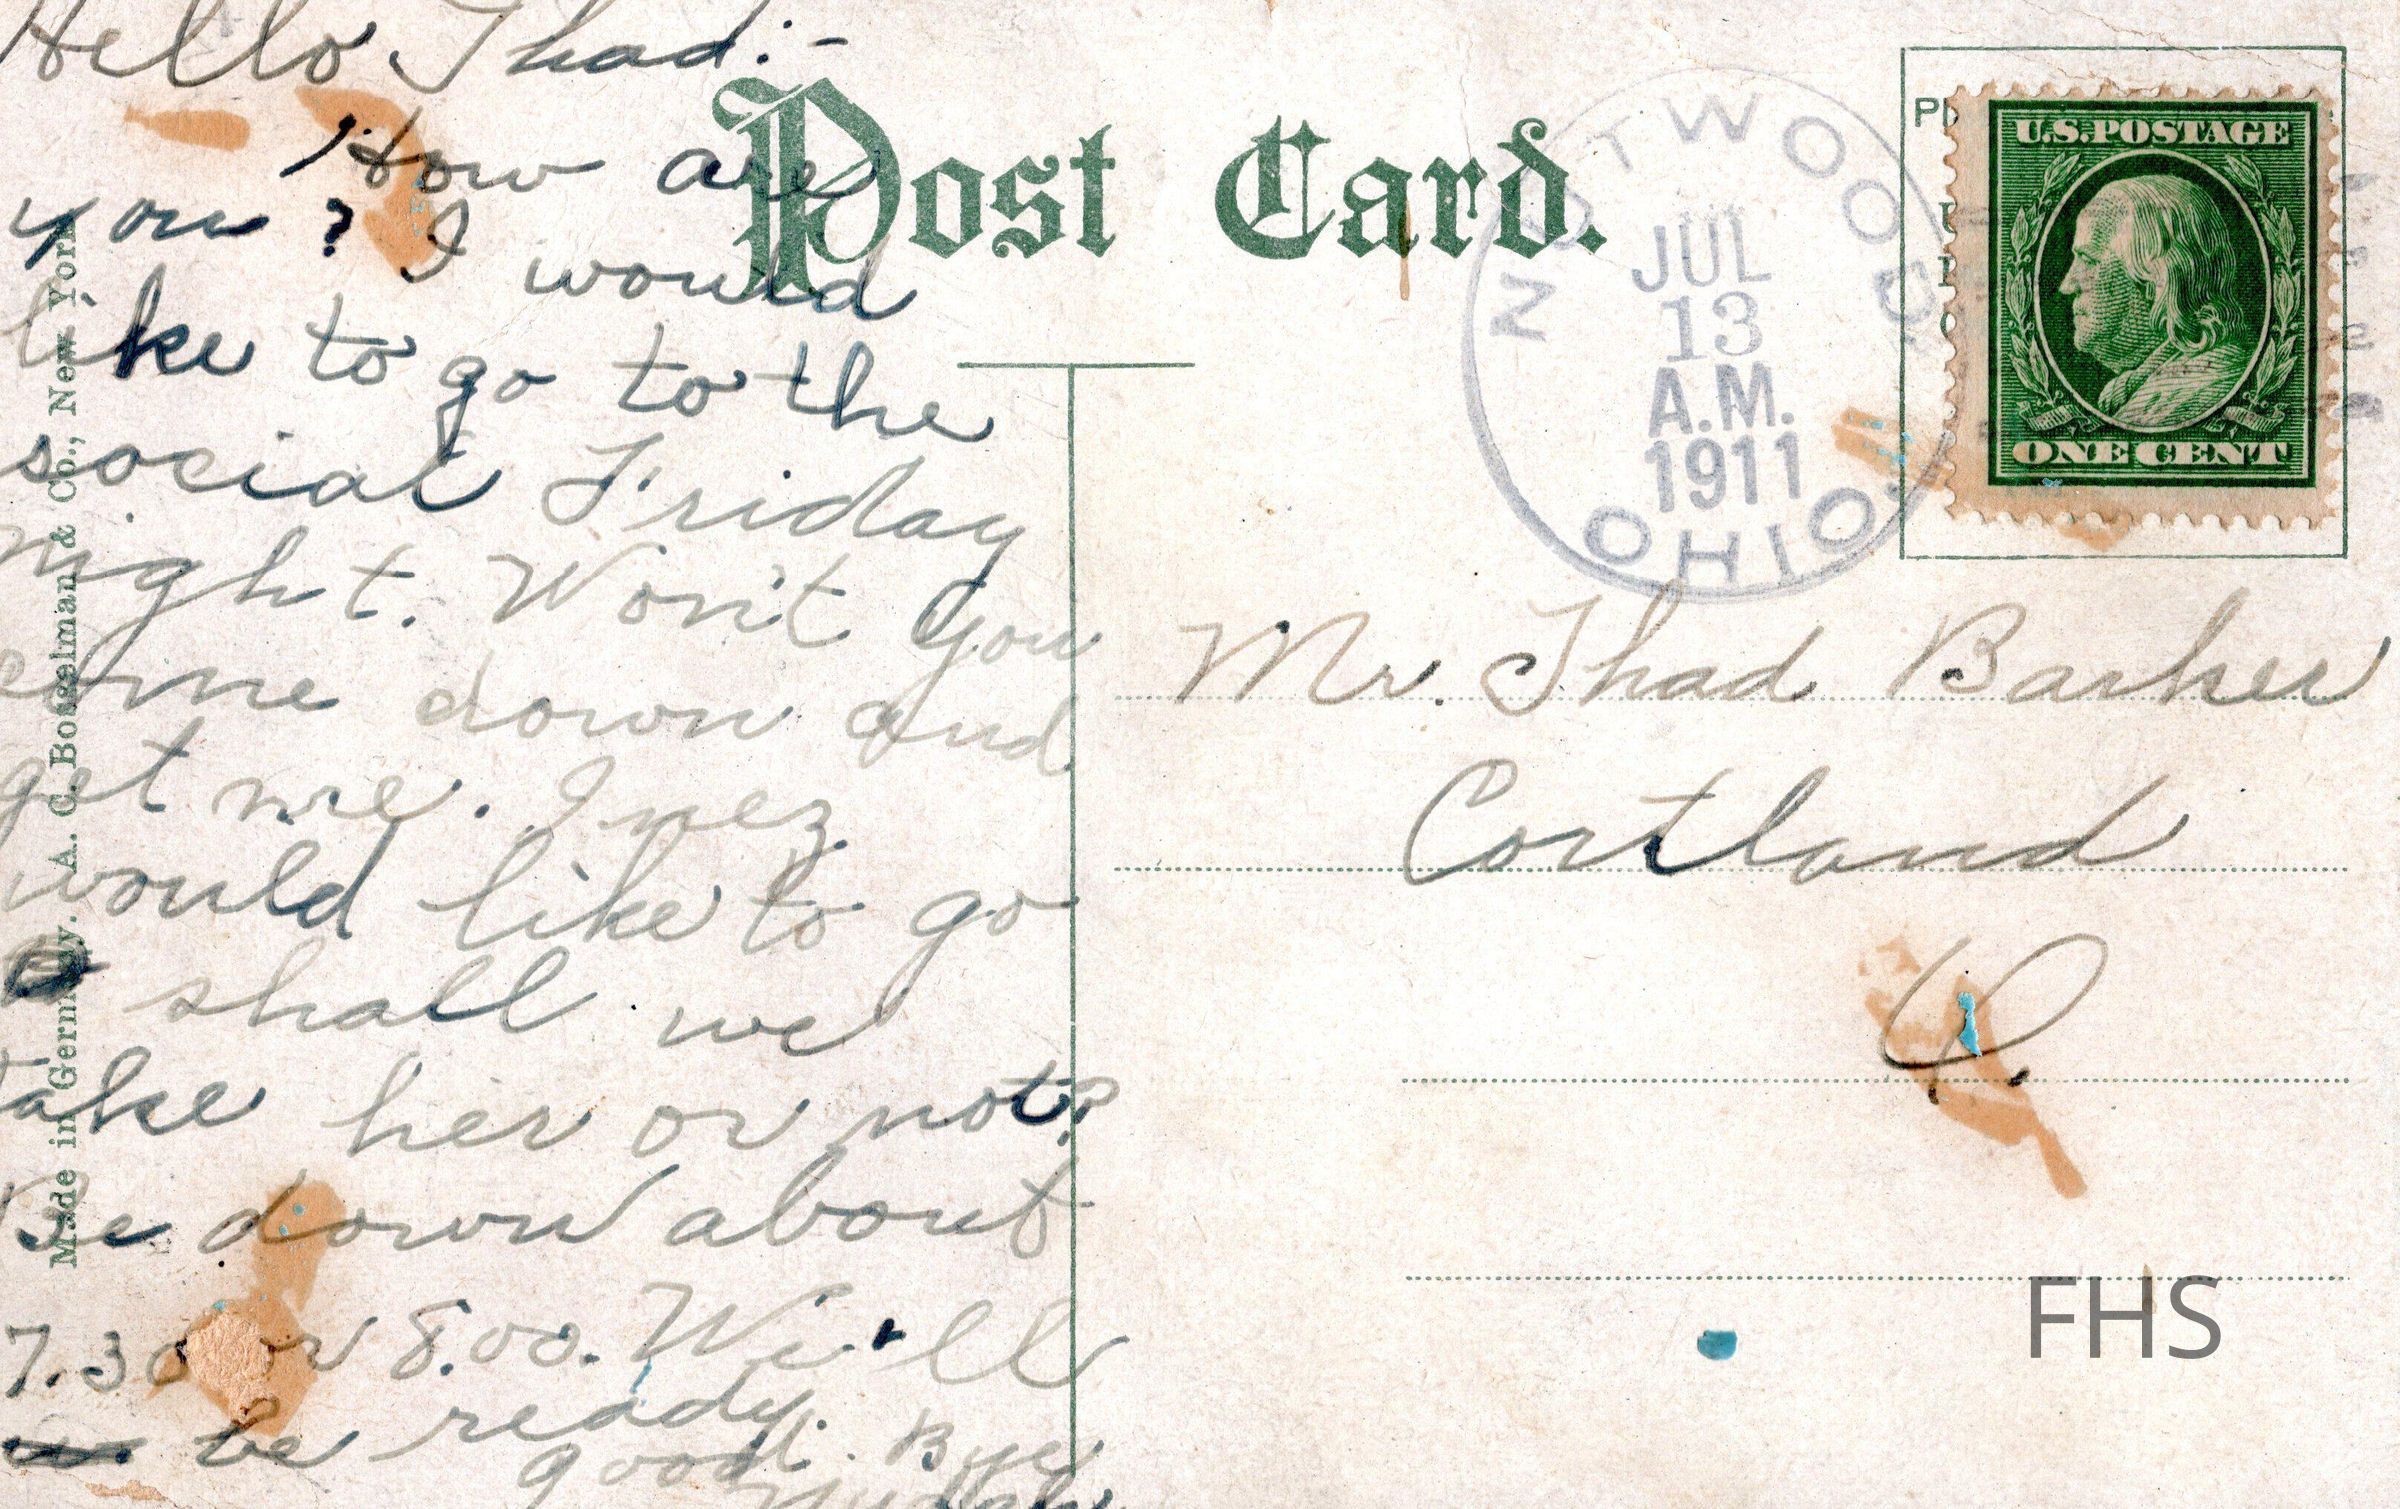 Hello Thad:-
How are
you? I would
like to go to the
social Friday
night. Won't you
come down and
get me. Inez
would like to go
shall we
take her or not?
Be down about
7.30 or 8.00. We'll
be ready.
good. Bye
Made in Germany. A. C. Bosselman & Co., New York
Post Card.
NUTWOOD
JUL
13
A.M.
1911
OHIO.
U.S. POSTAGE
ONE CENT
Mr. Thad Barker
Cortland
O.
FHS